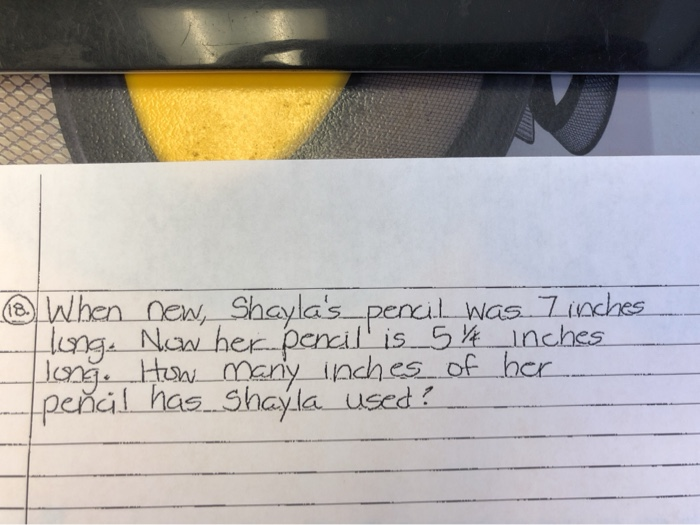 18. When new, Shayla's pencil was 7 inches
long. Now her pencil is 5 1/4 inches
long. How many inches of her
pencil has Shayla used?